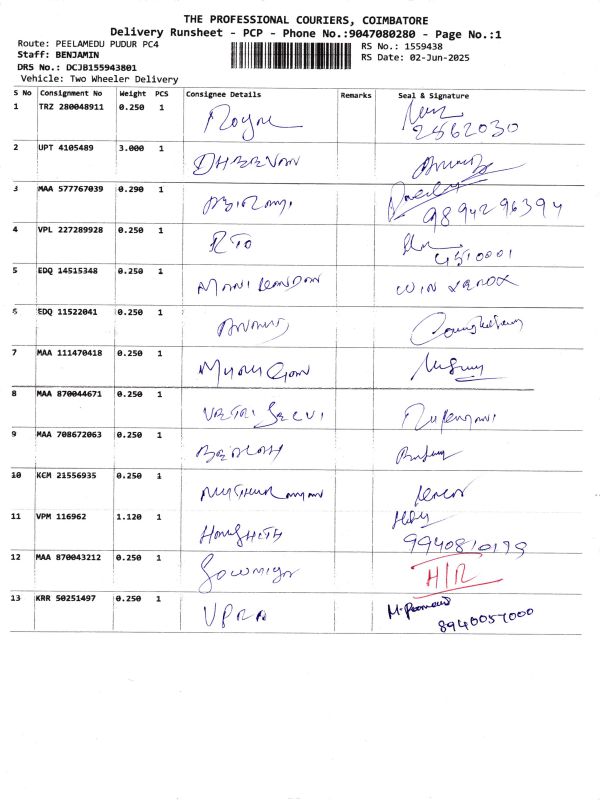 THE PROFESSIONAL COURIERS, COIMBATORE
Delivery Runsheet - PCP - Phone No.:9047080280 - Page No.:1
Route: PEELAMEDU PUDUR PC4
Staff: BENJAMIN
DRS No.: DCJB155943801
Vehicle: Two Wheeler Delivery
RS No.: 1559438
RS Date: 02-Jun-2025
S No Consignment No Weight PCS Consignee Details Remarks Seal & Signature
1 TRZ 280048911 0.250 1
2562030
2 UPT 4105489 3.000 1
3 MAA 577767039 0.290 1
9894296394
4 VPL 227289928 0.250 1 RTO
4510001
5 EDQ 14515348 0.250 1 MANI KANDAN WIN XEROX
6 EDQ 11522041 0.250 1
7 MAA 111470418 0.250 1 MURUGAN
8 MAA 870044671 0.250 1 VETRI SELVI
9 MAA 708672063 0.250 1
10 KCM 21556935 0.250 1
11 VPM 116962 1.120 1
9940810195
12 MAA 870043212 0.250 1 Sowmiya H/R
13 KRR 50251497 0.250 1
8940057000